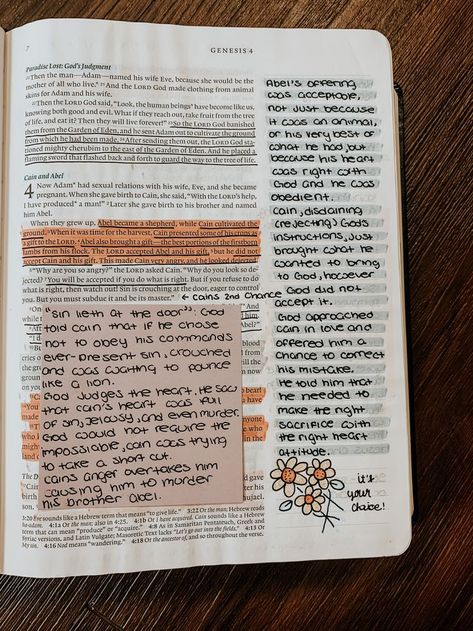 7
GENESIS 4
Paradise Lost: God's Judgment
20 Then the man—Adam—named his wife Eve, because she would be the
mother of all who live. 21 And the LORD God made clothing from animal
skins for Adam and his wife.
22 Then the LORD God said, "Look, the human beings have become like us,
knowing both good and evil. What if they reach out, take fruit from the tree
of life, and eat it? Then they will live forever!" 23 So the LORD God banished
them from the Garden of Eden, and he sent Adam out to cultivate the ground
from which he had been made. 24 After sending them out, the LORD God
stationed mighty cherubim to the east of the Garden of Eden. And he placed a
flaming sword that flashed back and forth to guard the way to the tree of life.
Cain and Abel
4 Now Adam had sexual relations with his wife, Eve, and she became
pregnant. When she gave birth to Cain, she said, "With the LORD's help,
I have produced a man!" 2 Later she gave birth to his brother and named
him Abel.
When they grew up, Abel became a shepherd, while Cain cultivated the
ground. 3 When it was time for the harvest, Cain presented some of his crops as
a gift to the LORD. 4 Abel also brought a gift—the best portions of the firstborn
lambs from his flock. The LORD accepted Abel and his gift, 5 but he did not
accept Cain and his gift. This made Cain very angry, and he looked dejected.
6 "Why are you so angry?" the LORD asked Cain. "Why do you look so de-
jected? 7 You will be accepted if you do what is right. But if you refuse to do
what is right, then watch out! Sin is crouching at the door, eager to control
you. But you must subdue it and be its master."
← Cains 2nd Chance
"Sin lieth at the door". God
told cain that if he chose
not to obey his commands
ever-present sin, crouched
and was waiting to pounce
like a lion.
God Judges the heart, He saw
that cain's heart was full
of sin, jelousy, and even murder.
God would not require the
impossiable, cain was trying
to take a short cut.
cains anger overtakes him
causing him to murder
his brother Abel.
Abel's offering
was acceptable,
not just because
it was an animal,
or his very best of
what he had, but
because his heart
was right with
God and he was
obedient.
cain, disdaining
(rejecting) God's
instructions, Just
brought what he
wanted to bring
to God, however
God did not
accept it.
God approached
cain in love and
offered him a
chance to correct
his mistake.
He told him that
he needed to
make the right
sacrifice with
the right heart
attitude.
it's
your
choice!
3:20 Eve sounds like a Hebrew term that means "to give life." 3:22 Or the man; Hebrew reads
4:1a Or the man; also in 4:25. 4:1b Or I have acquired. Cain sounds like a Hebrew
term that can mean "produce" or "acquire." 4:8 As in Samaritan Pentateuch, Greek and
Syriac versions, and Latin Vulgate; Masoretic Text lacks "Let's go out into the fields." 4:13 Or
My sin. 4:16 Nod means "wandering." 4:18 Or the ancestor of, and so throughout the verse.